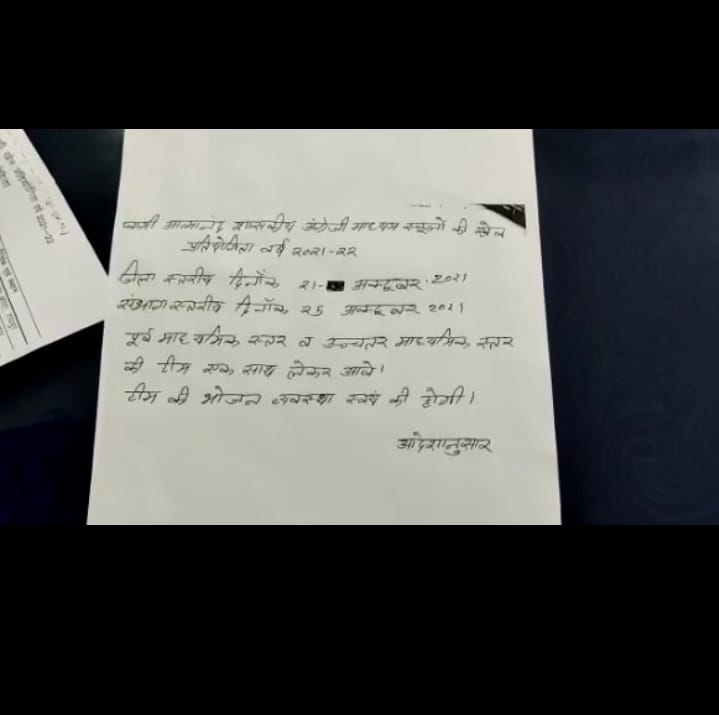 स्वामी आत्मानंद शासकीय अंग्रेजी माध्यम स्कूलों की खेल
प्रतियोगिता वर्ष २०२१-२२
जिला स्तरीय दिनाँक २1- अक्टूबर. 2०21
संभाग स्तरीय दिनाँक २5 अक्टूबर 2०21
पूर्व माध्यमिक स्तर व उच्चतर माध्यमिक स्तर
की टीम एक साथ लेकर आवे।
टीम की भोजन व्यवस्था स्वयं की होगी।
आदेशानुसार